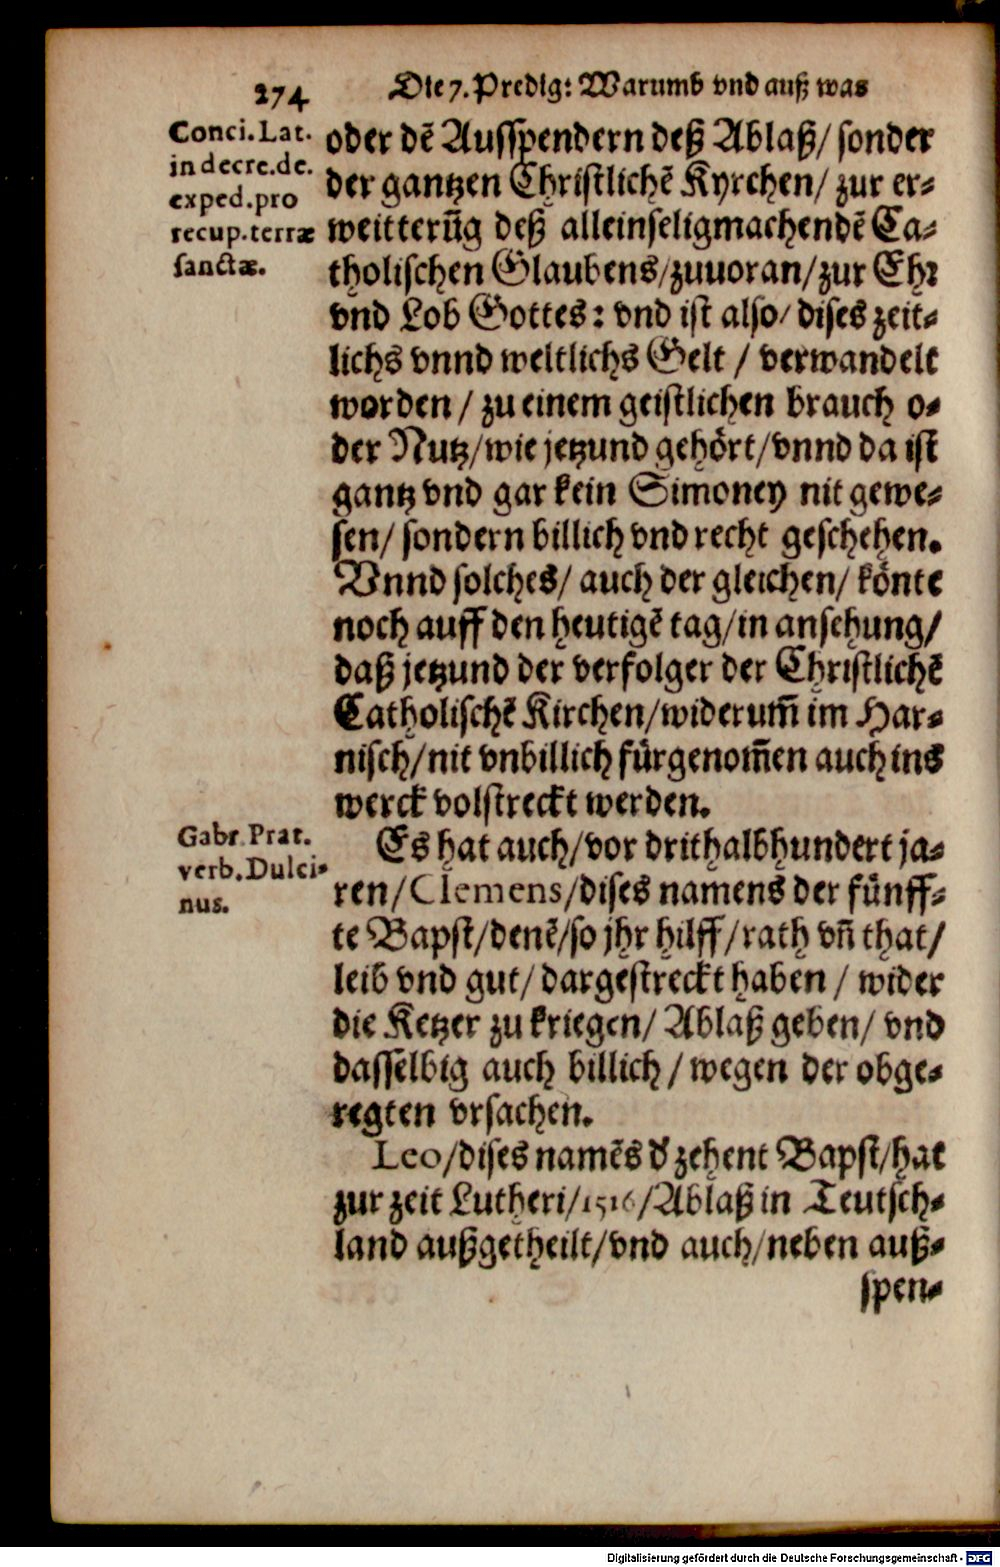 274
Die 7. Predig: Warumb vnd auß was
Conci. Lat.
in decre. de.
exped. pro
recup. terræ
sanctæ.
oder dē Ausspendern deß Ablaß/ sonder
der gantzen Christlichē Kyrchen/ zur er-
weitterūg deß alleinseligmachendē Ca-
tholischen Glaubens/ zuuoran/ zur Ehr
vnd Lob Gottes: vnd ist also/ dises zeit-
lichs vnnd weltlichs Gelt / verwandelt
worden / zu einem geistlichen brauch o-
der Nutz/ wie jetzund gehört/ vnnd da ist
gantz vnd gar kein Simoney nit gewe-
sen/ sondern billich vnd recht geschehen.
Vnnd solches/ auch der gleichen/ könte
noch auff den heutigē tag/ in ansehung/
daß jetzund der verfolger der Christlichē
Catholischē Kirchen/ widerum̄ im Har-
nisch/ nit vnbillich fürgenom̄en auch ins
werck volstreckt werden.
Gabr. Prat.
verb. Dulci-
nus.
Es hat auch/ vor drithalbhundert ja-
ren/ Clemens/ dises namens der fünff-
te Bapst/ denē/ so jhr hilff/ rath vn̄ that/
leib vnd gut/ dargestreckt haben / wider
die Ketzer zu kriegen/ Ablaß geben/ vnd
dasselbig auch billich / wegen der obge-
regten vrsachen.
Leo/ dises namēs d' zehent Bapst/ hat
zur zeit Lutheri/ 1516/ Ablaß in Teutsch-
land außgetheilt/ vnd auch/ neben auß-
spen-
Digitalisierung gefördert durch die Deutsche Forschungsgemeinschaft - DFG